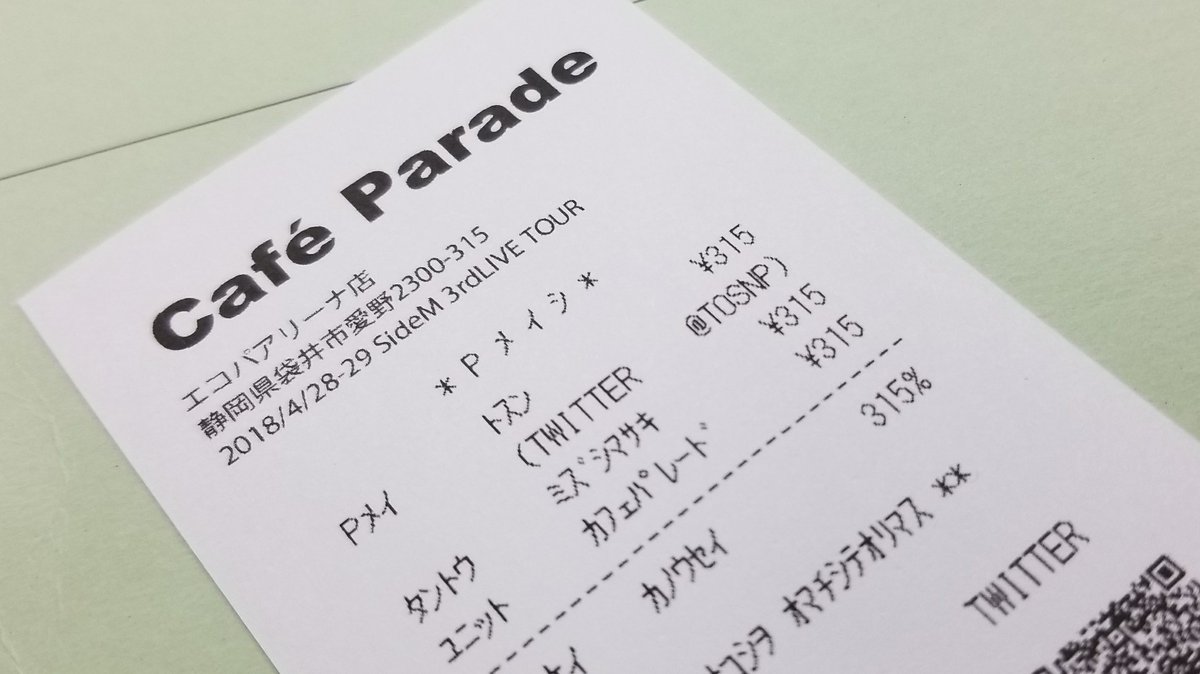 Café Parade
エコパアリーナ店
静岡県袋井市愛野2300-315
2018/4/28-29 SideM 3rdLIVE TOUR
* P メ イ シ *
Pメイ トスン ¥315
(TWITTER @TOSNP)
タントウ ミズシマサキ ¥315
ユニット カフェパレード ¥315
カノウセイ 315%
オマチシテオリマス **
TWITTER